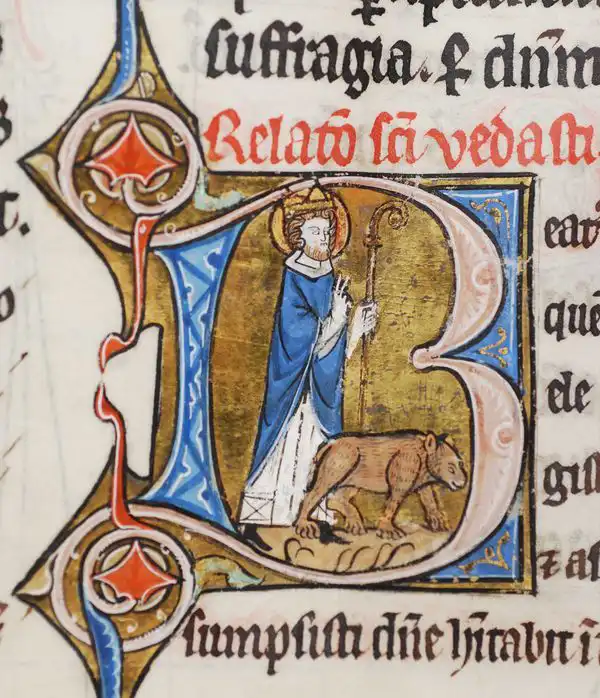 suffragia. ꝑ dn̄m
Relatō sc̄i vedasti.
B eat
que
ele
⁊ as
sumpsisti dn̄e h̄itabit ī